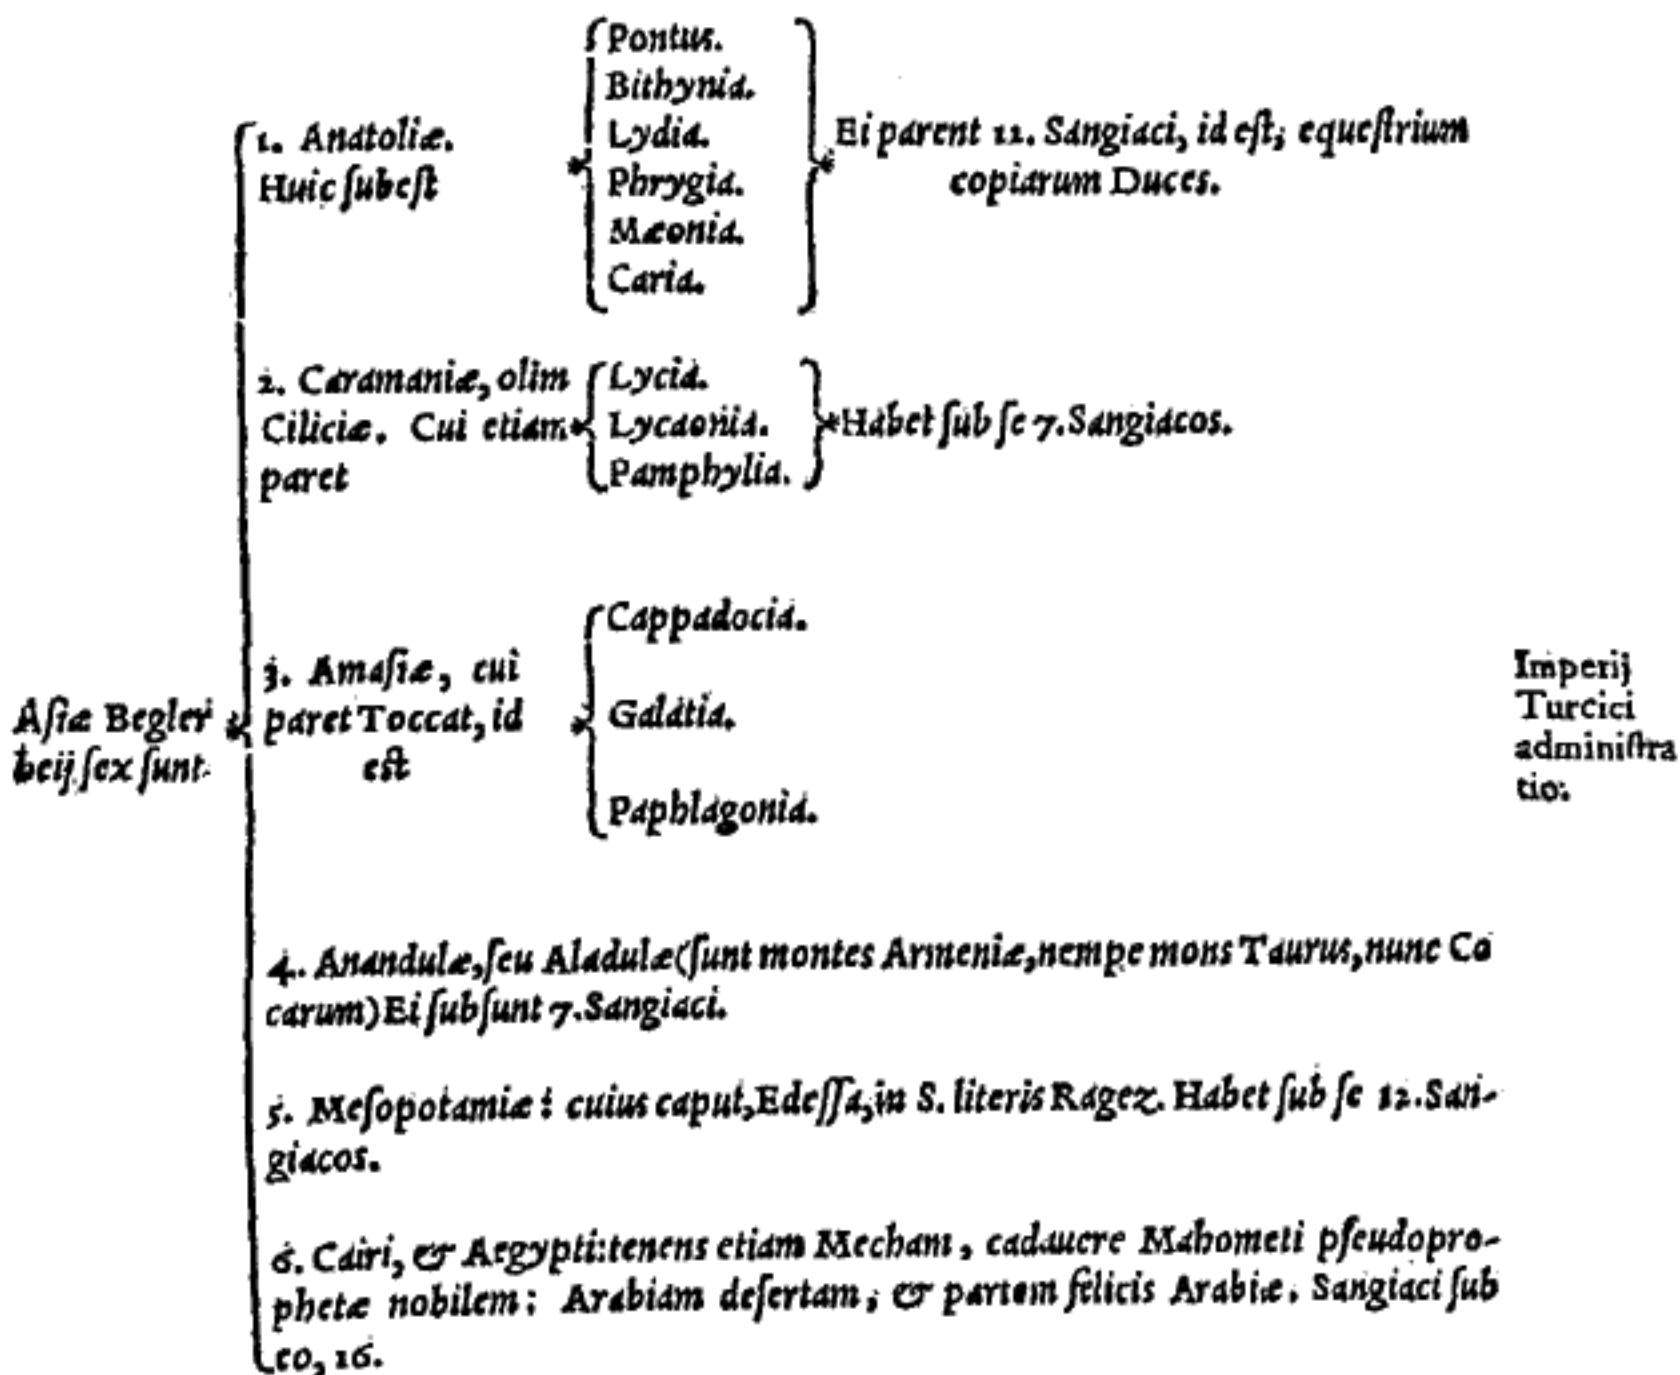 Aſiæ Begler
beij ſex ſunt
1. Anatoliæ.
Huic ſubeſt
Pontus.
Bithynia.
Lydia.
Phrygia.
Mæonia.
Caria.
Ei parent 11. Sangiaci, id eſt, equeſtrium
copiarum Duces.
2. Caramaniæ, olim
Ciliciæ. Cui etiam
paret
Lycia.
Lycaonia.
Pamphylia.
Habet ſub ſe 7. Sangiacos.
3. Amaſiæ, cui
paret Toccat, id
eſt
Cappadocia.
Galatia.
Paphlagonia.
4. Anandulæ, ſeu Aladulæ (ſunt montes Armeniæ, nempe mons Taurus, nunc Co
carum) Ei ſubſunt 7. Sangiaci.
5. Meſopotamiæ: cuius caput, Edeſſa, in S. literis Ragez. Habet ſub ſe 12. San-
giacos.
6. Cairi, & Aegypti: tenens etiam Mecham, cadauere Mahometi pſeudopro-
phetæ nobilem: Arabiam deſertam, & partem felicis Arabiæ. Sangiaci ſub
eo, 16.
Imperij
Turcici
adminiſtra
tio.